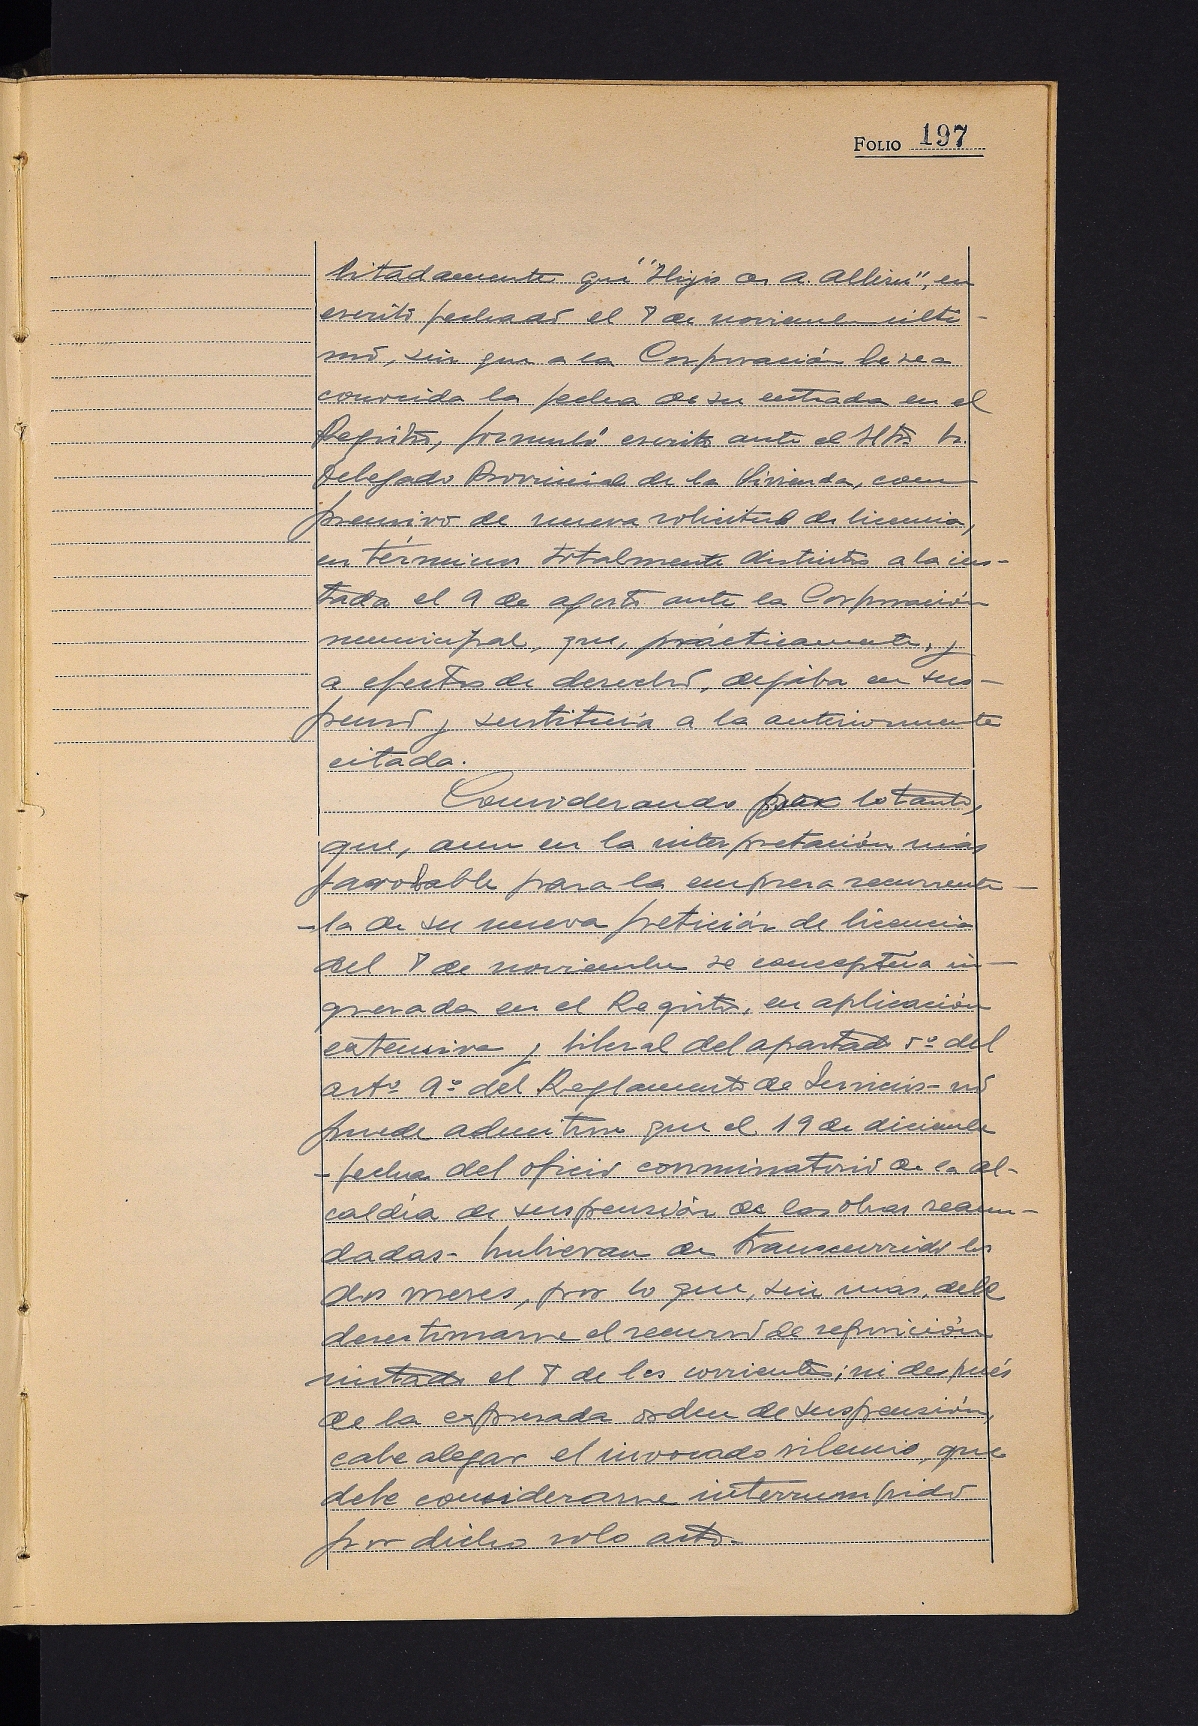 FOLIO 197
bitadamente que "Hijos de A. Alberu", en
escrito fechado el 8 de noviembre últi-
mo, sin que a la Corporación le sea
conocida la fecha de su entrada en el
Registro, formuló escrito ante el Iltº. Sr.
Delegado Provincial de la Vivienda, com
prensivo de nueva solicitud de licencia,
en términos totalmente distintos a la ins-
tada el 9 de agosto ante la Corporación
municipal, que, prácticamente, y
a efectos de derecho, dejaba en sus-
penso y sustituía a la anteriormente
citada.
Considerando por lo tanto,
que, aun en la interpretación más
favorable para la empresa recurrente -
- la de su nueva petición de licencia
del 8 de noviembre se conceptúa in-
gresada en el Registro, en aplicación
extensiva y liberal del apartado 5º del
artº 9º del Reglamento de Servicios - no
puede admitirse que el 19 de diciembre
- fecha del oficio conminatorio de la al-
caldía de suspensión de las obras reanu-
dadas - hubieran de transcurrido los
dos meses, por lo que, sin más, debe
desestimarse el recurso de reposición
instado el 8 de los corrientes; ni después
de la expresada orden de suspensión,
cabe alegar el invocado silencio, que
debe considerarse interrumpido
por dicho solo acto.